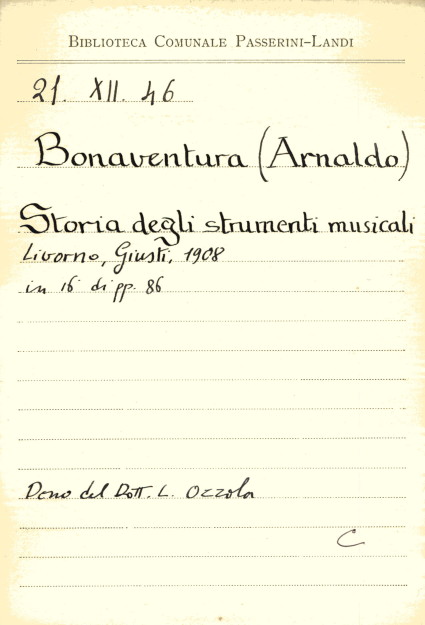 BIBLIOTECA COMUNALE PASSERINI-LANDI
21. XII. 46
Bonaventura (Arnaldo)
Storia degli strumenti musicali
Livorno, Giusti, 1908
in 16 di pp. 86
Dono del Dott. L. Ozzola
C